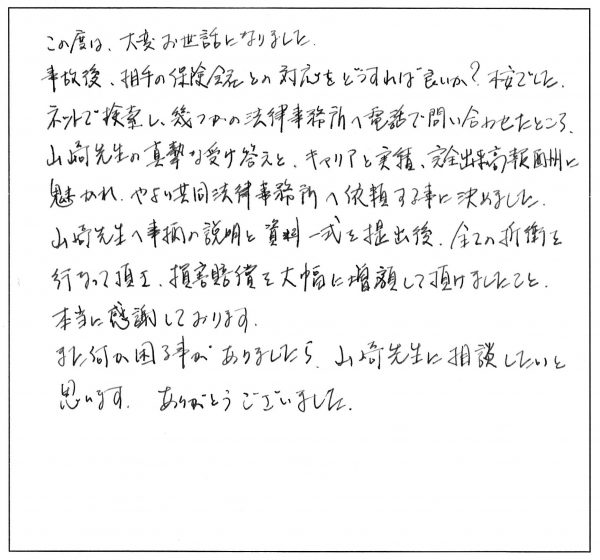 この度は、大変お世話になりました.
事故後、相手の保険会社との対応をどうすれば良いか?不安でした.
ネットで検索し、幾つかの法律事務所へ電話で問い合わせたところ、
山崎先生の真摯な受け答えと、キャリアと実績、完全出来高報酬に
魅かれ、やよい共同法律事務所へ依頼する事に決めました.
山崎先生へ事柄の説明と資料一式を提出後、全ての折衝を
行なって頂き、損害賠償を大幅に増額して頂けましたこと、
本当に感謝しております.
また何か困る事がありましたら、山崎先生に相談したいと
思います. ありがとうございました.